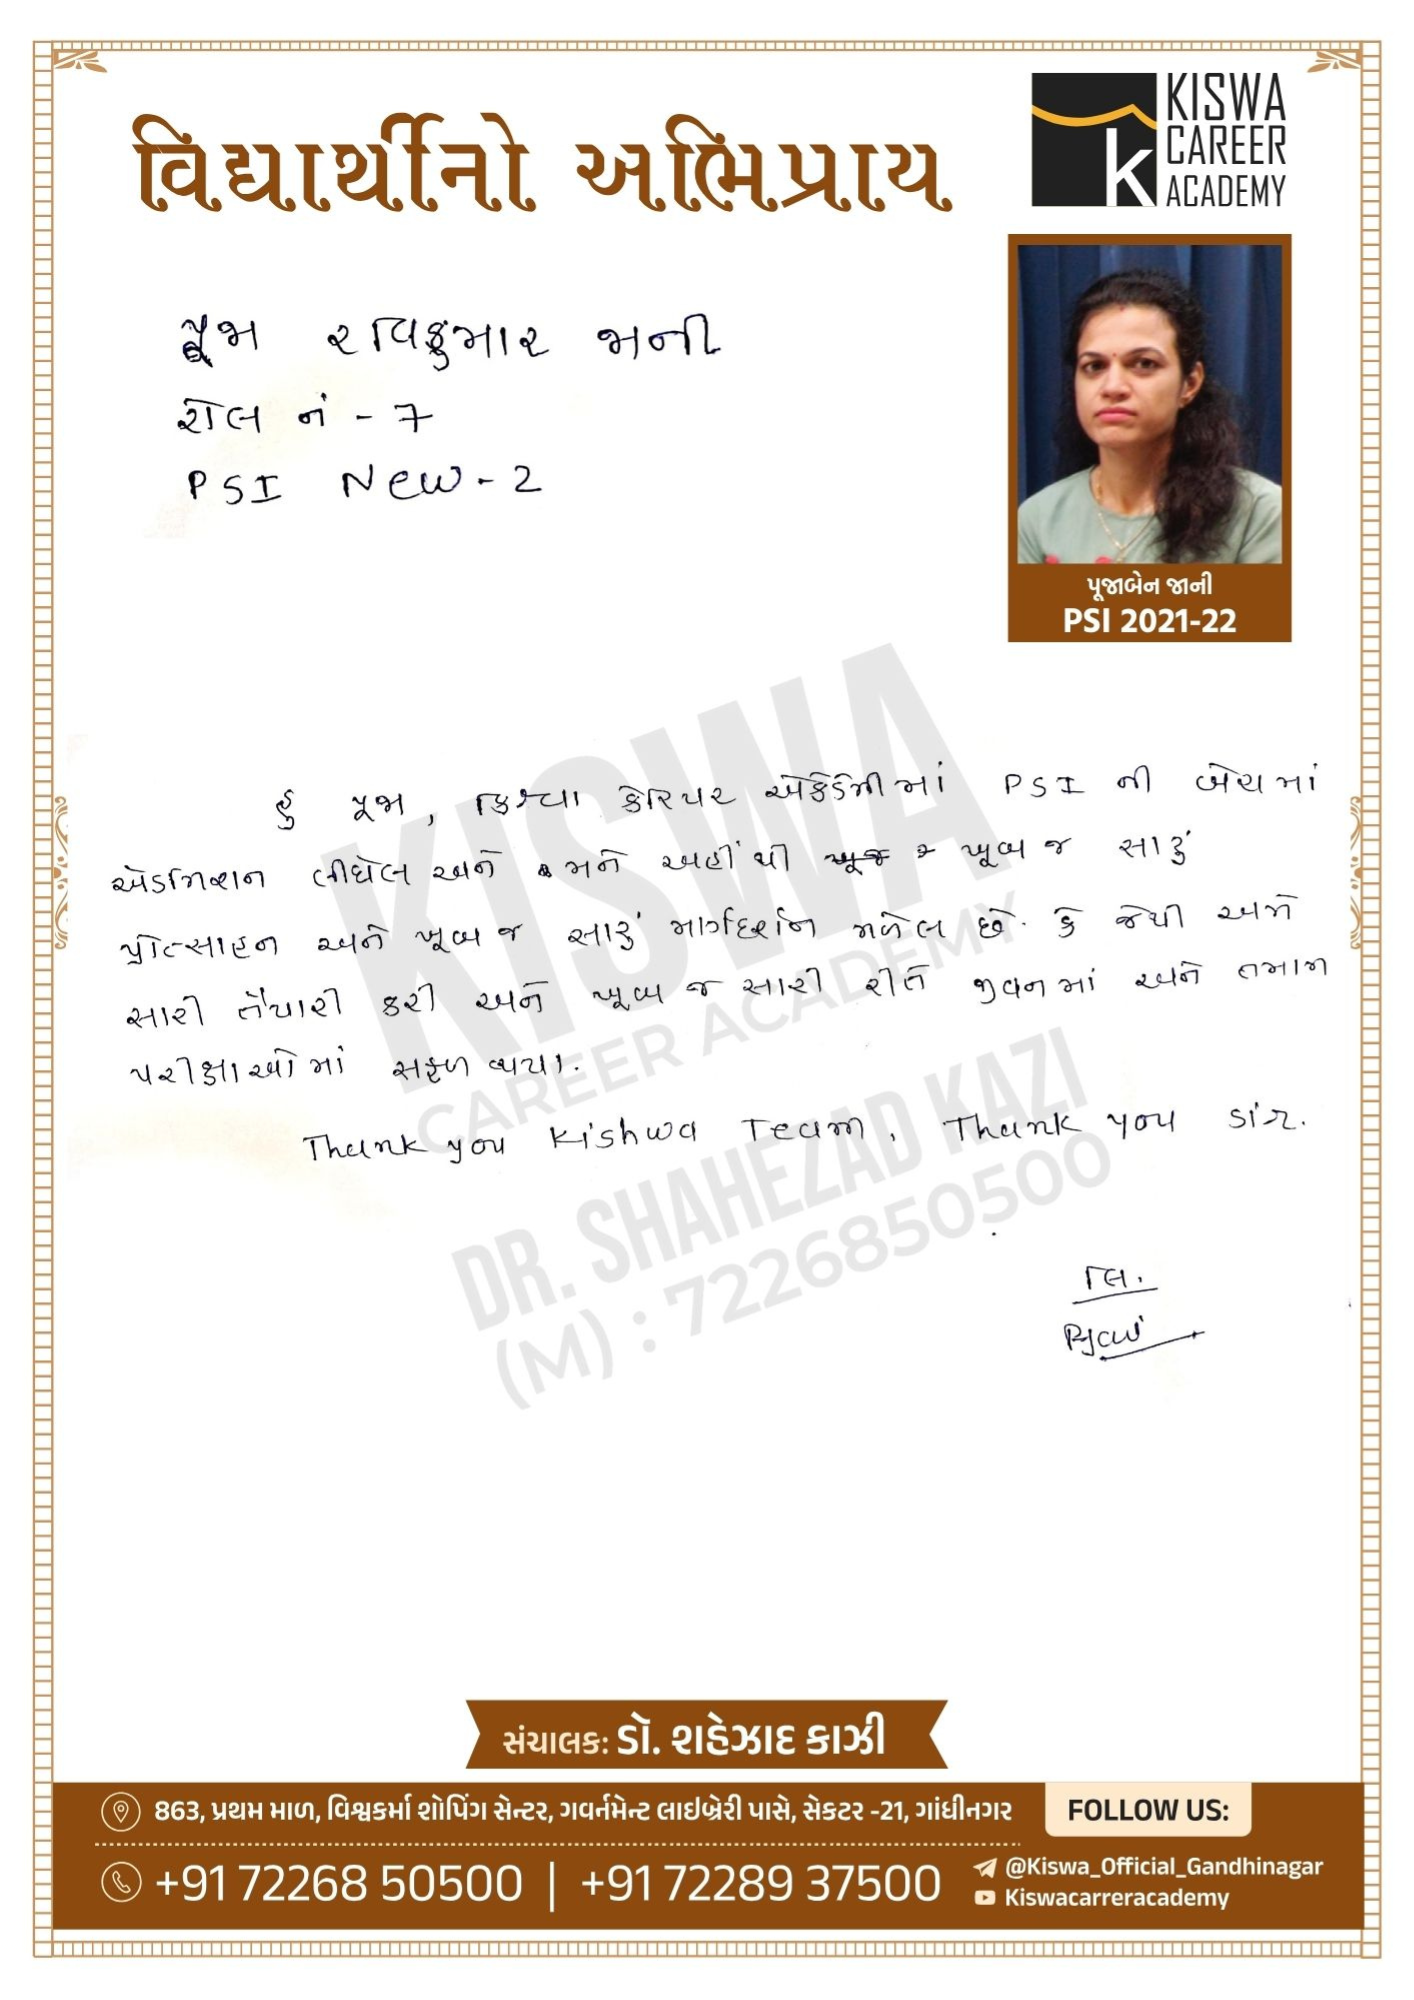 વિદ્યાર્થીનો અભિપ્રાય
KISWA
CAREER
ACADEMY
પૂજા રવિકુમાર જાની
રોલ નં - 7
PSI New - 2
પૂજાબેન જાની
PSI 2021-22
હું પૂજા, કિશ્વા કેરિયર એકેડેમીમાં PSI ની બેચમાં
એડમિશન લીધેલ અને મને અહીં થી ખૂબ જ સારું
પ્રોત્સાહન અને ખૂબ જ સારું માર્ગદર્શન મળેલ છે. કે જેથી અમે
સારી તૈયારી કરી અને ખૂબ જ સારી રીતે જીવનમાં અને તમામ
પરીક્ષાઓમાં સફળ થયા.
Thank you Kishwa Team, Thank you sir.
લિ.
KISWA
CAREER ACADEMY
DR. SHAHEZAD KAZI
(M) : 7226850500
સંચાલક: ડૉ. શહેઝાદ કાઝી
863, પ્રથમ માળ, વિશ્વકર્મા શોપિંગ સેન્ટર, ગવર્નમેન્ટ લાઇબ્રેરી પાસે, સેક્ટર -21, ગાંધીનગર
FOLLOW US:
+91 72268 50500 | +91 72289 37500
@Kiswa_Official_Gandhinagar
Kiswacarreracademy